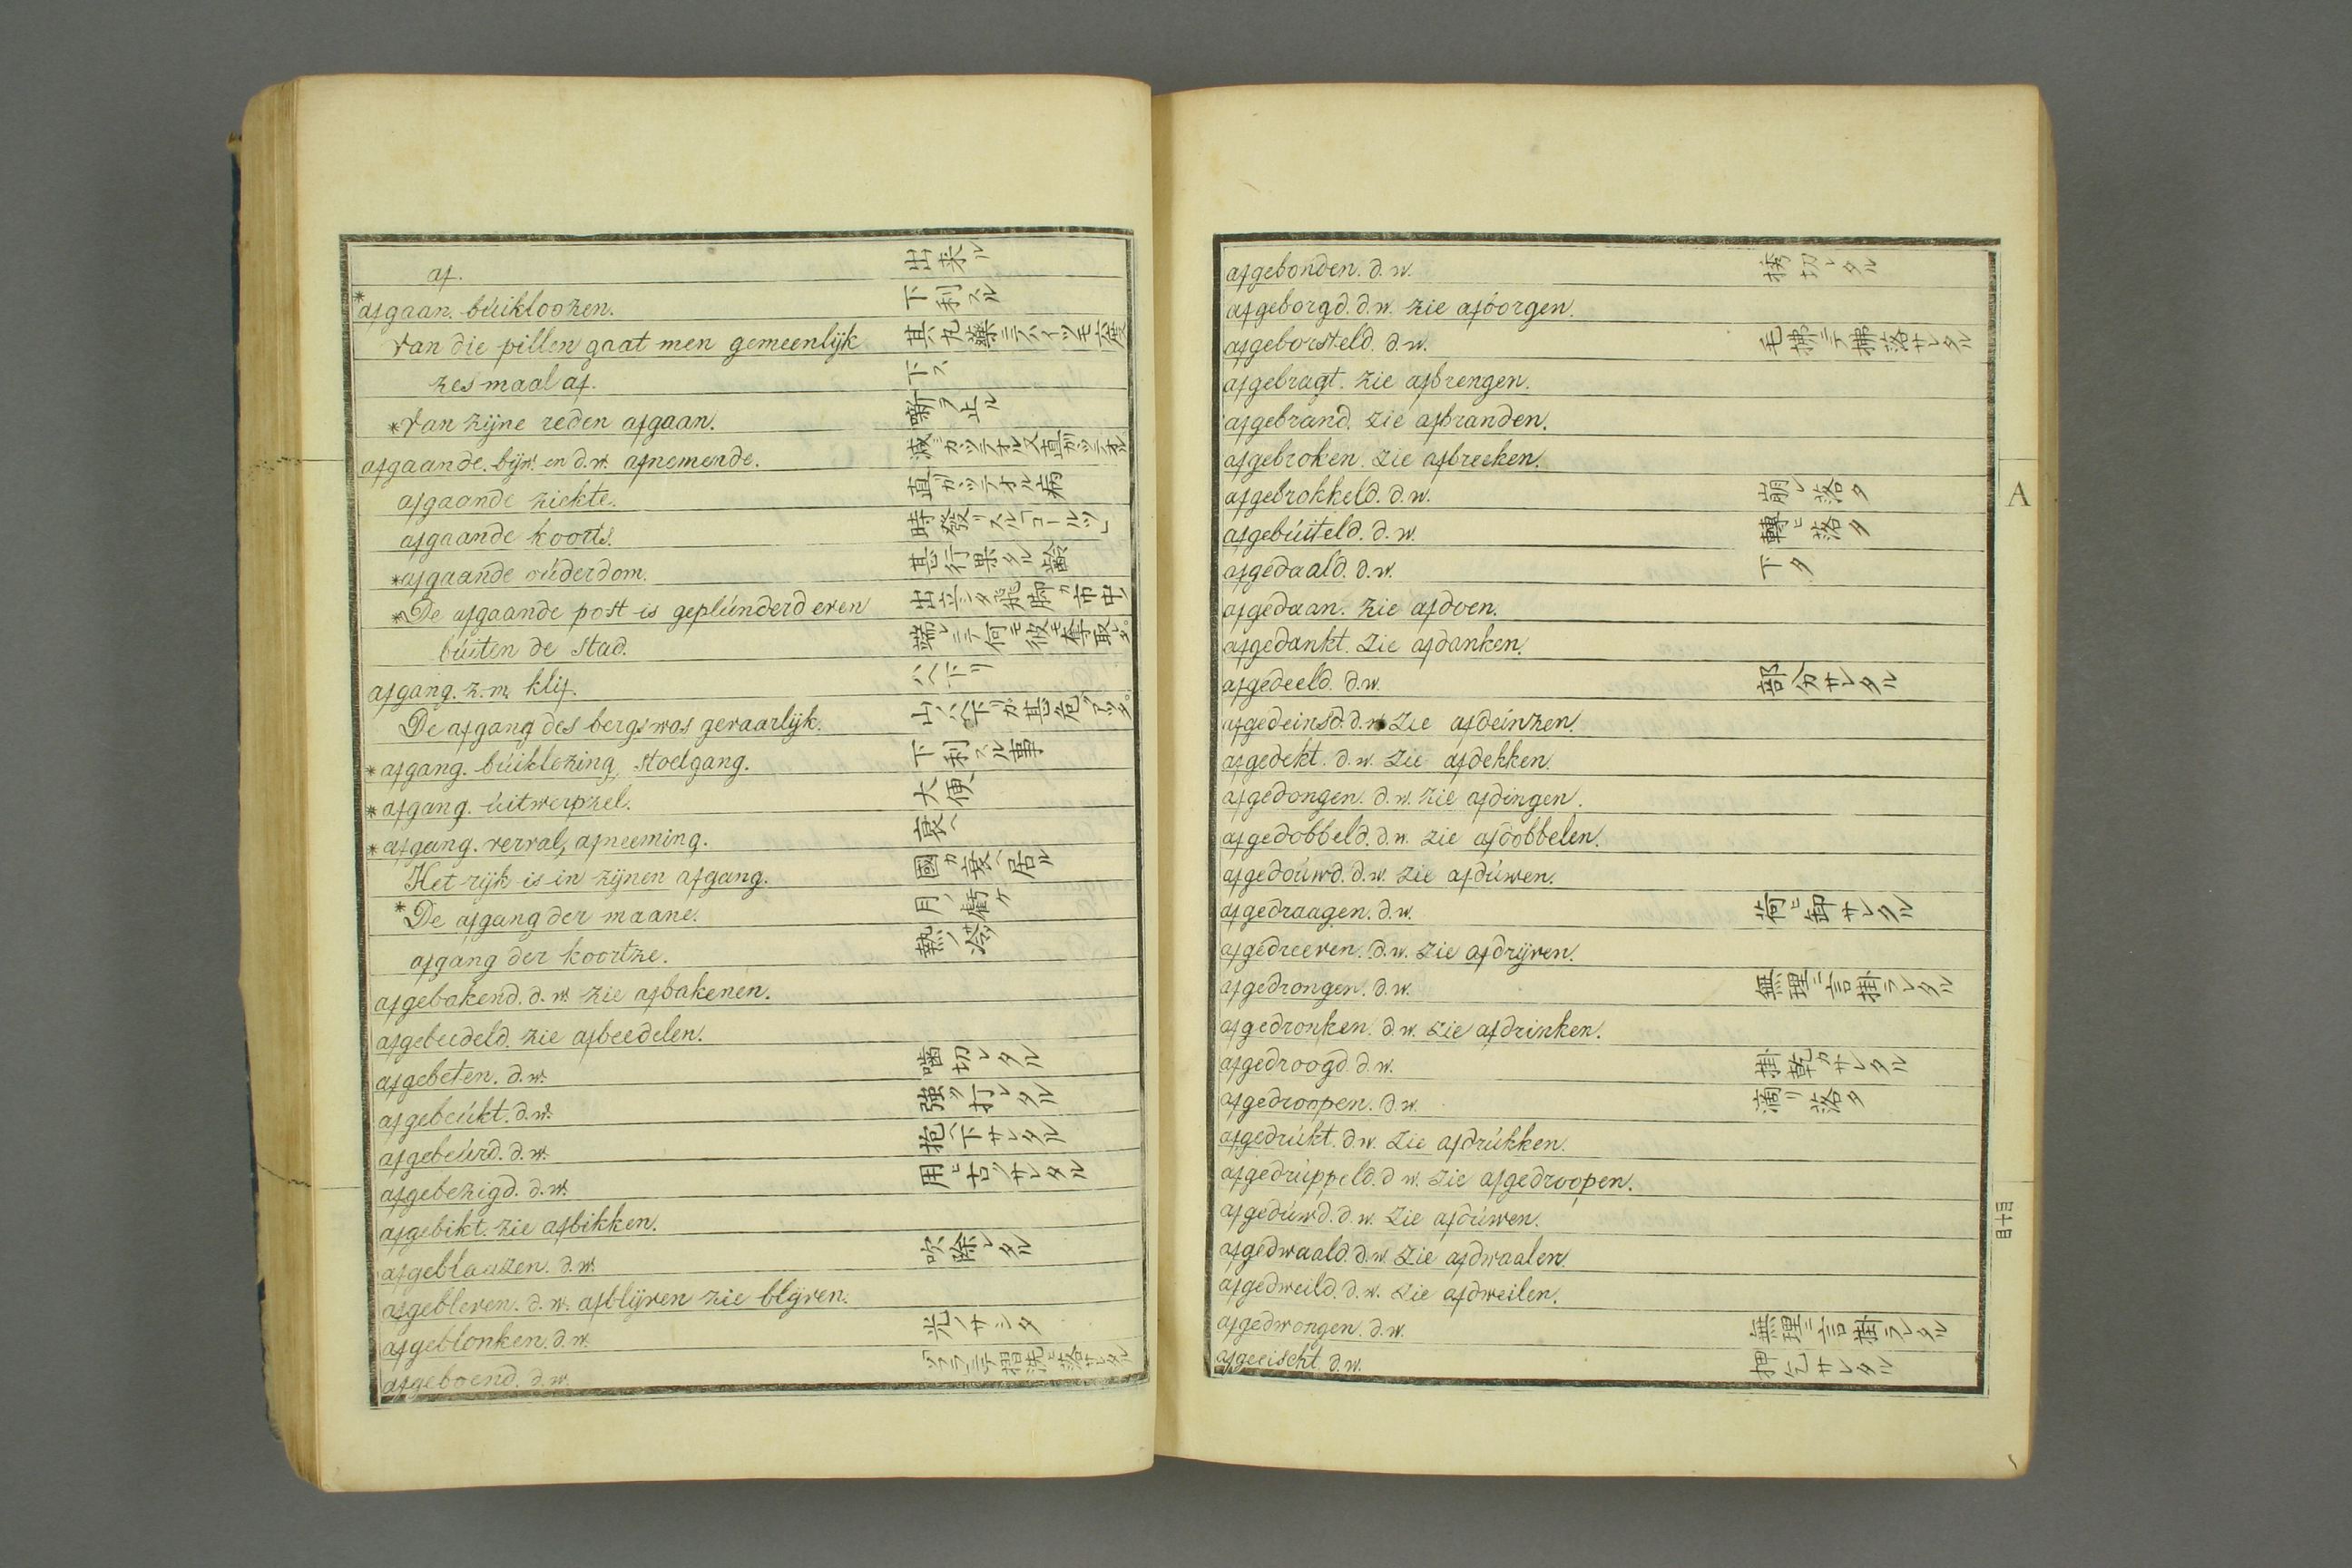 af. 出来ル
*afgaan. búikloozen. 下利スル
van die pillen gaat men gemeenlijk 其丸藥ニテハイツモ六度
zes maal af. 下ス
*van zijne reden afgaan. 噺ヲ止ル
afgaande. bijw. en d.w. afnemende. 減カツテオル又直カツテオル
afgaande ziekte. 直カツテオル病
afgaande koorts. 時發リスル「コールツ」
*afgaande oúderdom. 甚行果タル齢
*De afgaande post is geplúnderd even 出立シタ飛脚カ市中
búiten de stad. 端レニテ何モ彼モ奪取レタ。
afgang. z.m. klif. ハヘ下リ
De afgang des bergs was gevaarlijk. 山ノハヘ下リガ甚危フアツタ。
*afgang. búiklozing, stoelgang. 下利スル事
*afgang. úitwerpzel. 大便
*afgang. verval, afneeming. 衰ヘ
Het rijk is in zijnen afgang. 國カ衰ヘ居ル
*De afgang der maane. 月ノ虧ケ
afgang der koortze. 熱ノ落
afgebakend. d.w. zie afbakenen.
afgebeedeld. zie afbeedelen.
afgebeten. d.w. 噛切レタル
afgebeúkt. d.w. 強ク打レタル
afgebeúrd. d.w. 抱ヘ下サレタル
afgebezigd. d.w. 用ヒ古ソサレタル
afgebikt. zie afbikken.
afgeblaazen. d.w. 吹除レタル
afgebleven. d.w. afblijven zie blijven.
afgeblonken. d.w. 光ノサシタ
afgeboend. d.w. 摺洗ヒ落サレタル
afgebonden. d.w. 切レタル
afgeborgd. d.w. zie afborgen.
afgeborsteld. d.w. 毛拂ニテ拂落サレタル
afgebragt. zie afbrengen.
afgebrand. zie afbranden.
afgebroken. zie afbreeken.
afgebrokkeld. d.w. 崩レ落タ
afgebúiteld. d.w. 轉ヒ落タ
afgedaald. d.w. 下タ
afgedaan. zie afdoen.
afgedankt. zie afdanken.
afgedeeld. d.w. 部分サレタル
afgedeinsd. d.w. zie afdeinzen.
afgedekt. d.w. zie afdekken.
afgedongen. d.w. zie afdingen.
afgedobbeld. d.w. zie afdobbelen.
afgedoúwd. d.w. zie afdúwen.
afgedraagen. d.w. 荷ヒ卸サレタル
afgedreeven. d.w. zie afdrijven.
afgedrongen. d.w. 無理ニ言掛ラレタル
afgedronken. d.w. zie afdrinken.
afgedroogd. d.w. 掛乾カサレタル
afgedroopen. d.w. 滴リ落タ
afgedrúkt. d.w. zie afdrúkken.
afgedrúppeld. d w. zie afgedroopen.
afgedúwd. d.w. zie afdúwen.
afgedwaald. d.w. zie afdwaalen.
afgedweild. d.w. zie afdweilen.
afgedwongen. d.w. 無理ニ言掛ラレタル
afgeeischt. d.w. 押乞サレタル
A